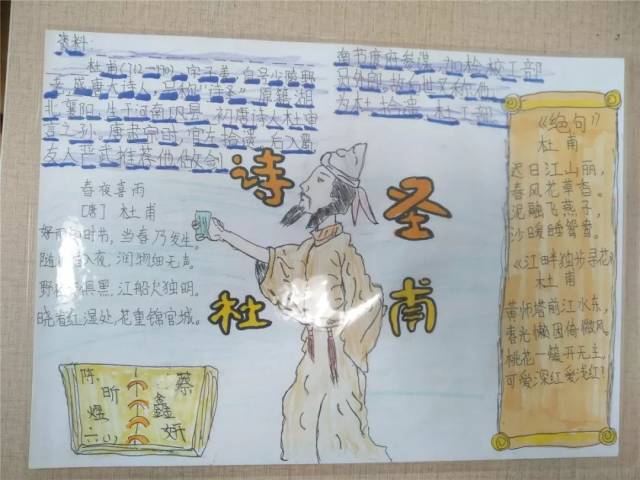 资料:
杜甫(712-770),字子美,自号少陵野
老,盛唐大诗人,
原籍湖
北襄阳,生于河南巩县。初唐诗人杜审
言之孙,唐肃宗时,官左拾遗。后入蜀,
友人严武推荐他做剑
南节度府参谋,加检校工部
员外郎。故后世又称他
为杜拾遗、杜工部
诗圣
杜甫
春夜喜雨
[唐] 杜甫
好雨知时节,当春乃发生。
随风入夜,润物细无声。
野径云俱黑,江船火独明。
晓看红湿处,花重锦官城。
陈昕煜
蔡鑫妍
六(1)
《绝句》
杜甫
迟日江山丽,
春风花草香。
泥融飞燕子,
沙暖睡鸳鸯。
《江畔独步寻花》
杜甫
黄师塔前江水东,
春光懒困倚微风。
桃花一簇开无主,
可爱深红爱浅红!